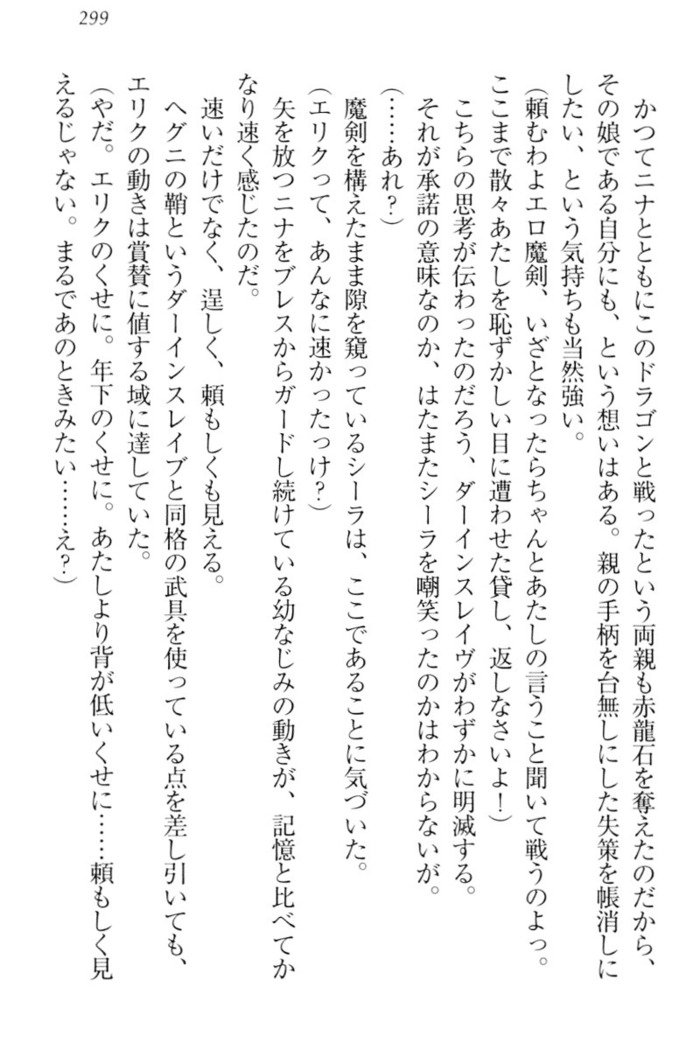 299
かつてニナとともにこのドラゴンと戦ったという両親も赤龍石を奪えたのだから、
その娘である自分にも、という想いはある。親の手柄を台無しにした失策を帳消しに
したい、という気持ちも当然強い。
(頼むわよエロ魔剣、いざとなったらちゃんとあたしの言うこと聞いて戦うのよっ。
ここまで散々あたしを恥ずかしい目に遭わせた貸し、返しなさいよ!)
こちらの思考が伝わったのだろう、ダーインスレイヴがわずかに明滅する。
それが承諾の意味なのか、はたまたシーラを嘲笑ったのかはわからないが。
(……あれ?)
魔剣を構えたまま隙を窺っているシーラは、ここであることに気づいた。
(エリクって、あんなに速かったっけ?)
矢を放つニナをブレスからガードし続けている幼なじみの動きが、記憶と比べてか
なり速く感じたのだ。
速いだけでなく、逞しく、頼もしくも見える。
ヘグニの鞘というダーインスレイブと同格の武具を使っている点を差し引いても、
エリクの動きは賞賛に値する域に達していた。
(やだ。エリクのくせに。年下のくせに。あたしより背が低いくせに……頼もしく見
えるじゃない。まるであのときみたい……え?)